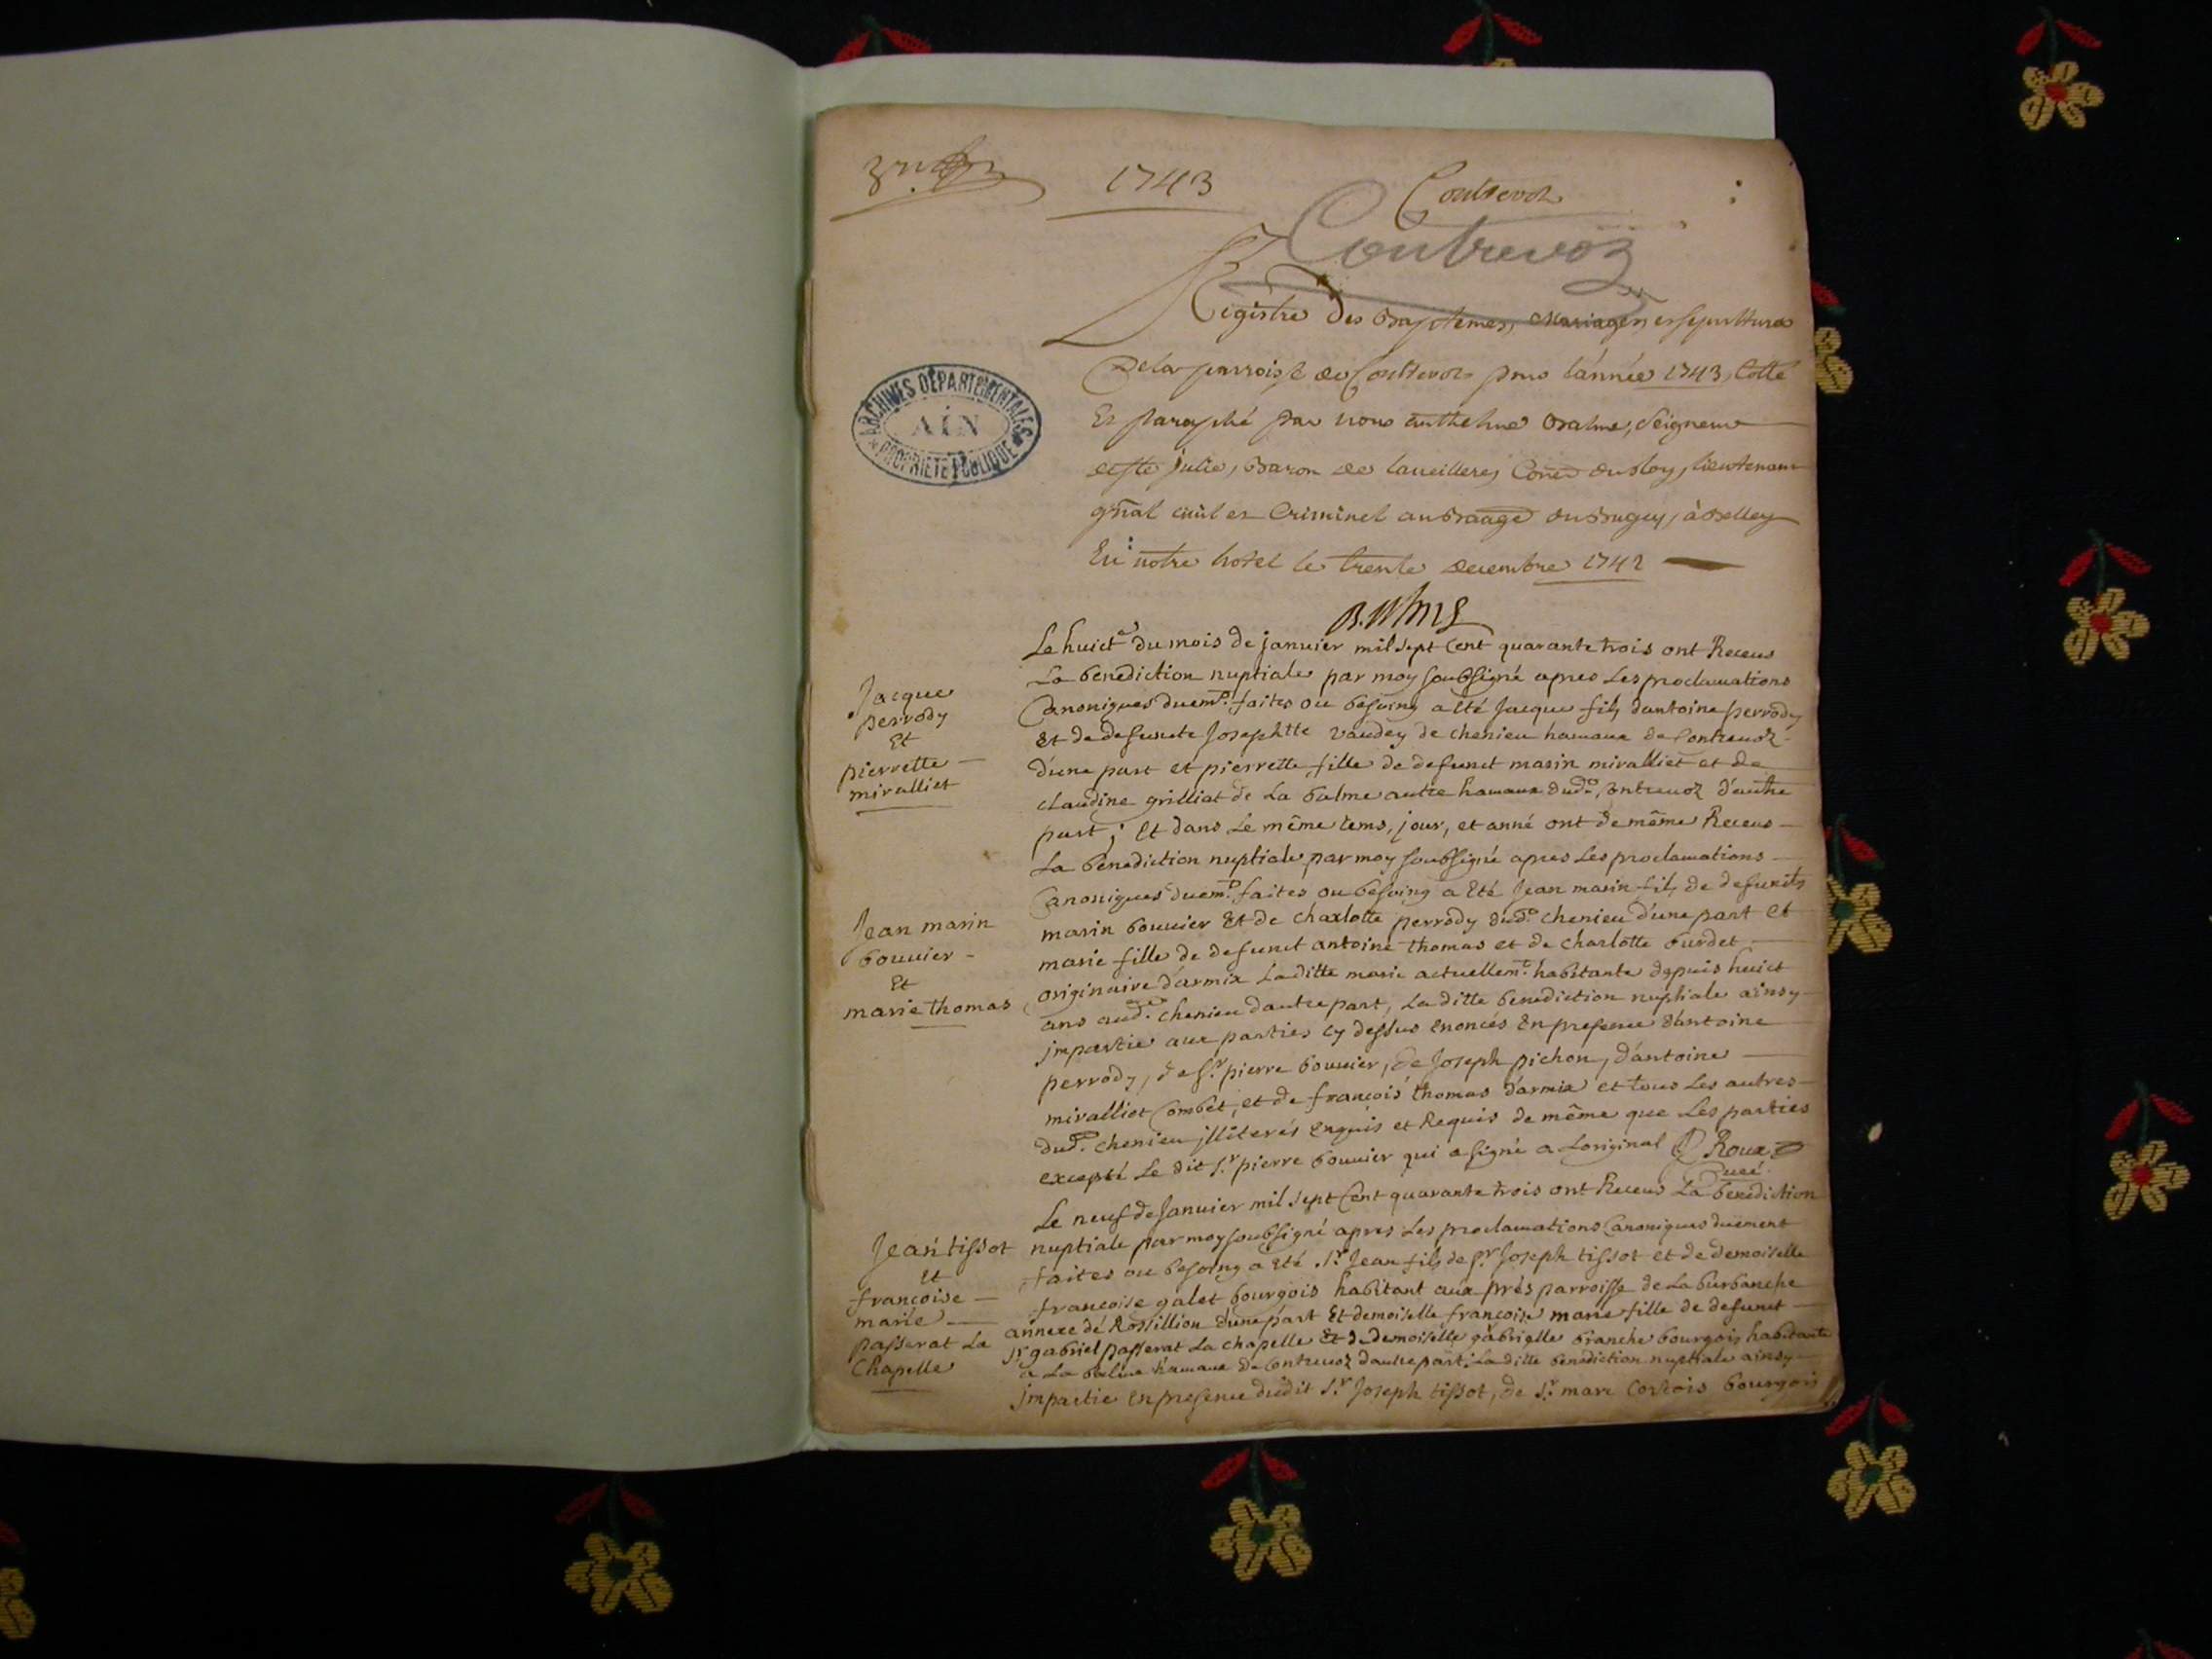 1743
Contrevoz
Contrevoz
Registre des Baptemes, Mariages et sepultures
De la parroisse de Contrevoz pour l'année 1743, Cotté
Et paraphé par nous anthelme Balme, Seigneur
de ste julie, Baron de
gñal civil et Criminel au Baage du Bugey, à Belley
En notre hotel le trente decembre 1742
Balme
ARCHIVES DÉPARTEMENTALES
AIN
PROPRIÉTÉ PUBLIQUE
Jacque
perrody
Et
pierrette
miralliet
Le huict.e du mois de janvier mil sept Cent quarante trois ont Receus
La benediction nuptiale par moy soubsigné apres Les proclamations
Canoniques duem.t faites ou besoing a eté Jacque fils d'antoine perrody
Et de defuncte Josephtte vaudey de chenieu hameau de Contrevoz
d'une part et pierrette fille de defunct marin miralliet et de
claudine grilliat de La balme autre hameau dud. Contrevoz d'autre
part ; Et dans Le même tems, jour, et anné ont de même Receus
La benediction nuptiale par moy soubsigné apres Les proclamations
Canoniques duem.t faites ou besoing a Eté Jean marin fils de defuncts
Jean marin
bouvier
Et
marie thomas
marin bouvier Et de charlotte perrody dud. chenieu d'une part et
marie fille de defunct antoine thomas et de charlotte burdet
originaire d'armix La ditte marie actuellem.t habitante depuis huict
ans aud. chenieu d'autre part, La ditte benediction nuptiale ainsy
jmpartie aux parties cy dessus enoncés En presence d'antoine
perrody, de s.r pierre bouvier, de Joseph pichon, d'antoine
miralliet Combet, et de françois thomas d'armix et tous Les autres
dud. chenieu jlliterés enquis et Requis de même que Les parties
excepté Le dit s.r pierre bouvier qui a signé a Loriginal Roux
Curé
Jean tissot
Et
francoise
marie
passerat La
Chapelle
Le neuf de Janvier mil sept Cent quarante trois ont Receus La benediction
nuptiale par moy soubsigné apres Les proclamations Canoniques duement
faites ou besoing a Eté s.r Jean fils de s.r Joseph tissot et de demoiselle
francoise galet bourgois habitant aux prés parroisse de La burbanche
annexe de Rossillion d'une part Et demoiselle francoise marie fille de defunct
s.r gabriel passerat La chapelle Et de demoiselle gabrielle branche bourgois habitante
a La balme hameau de Contrevoz d'autre part. La ditte benediction nuptiale ainsy
jmpartie En presence dudit s.r Joseph tissot, de s.r marc bourgois